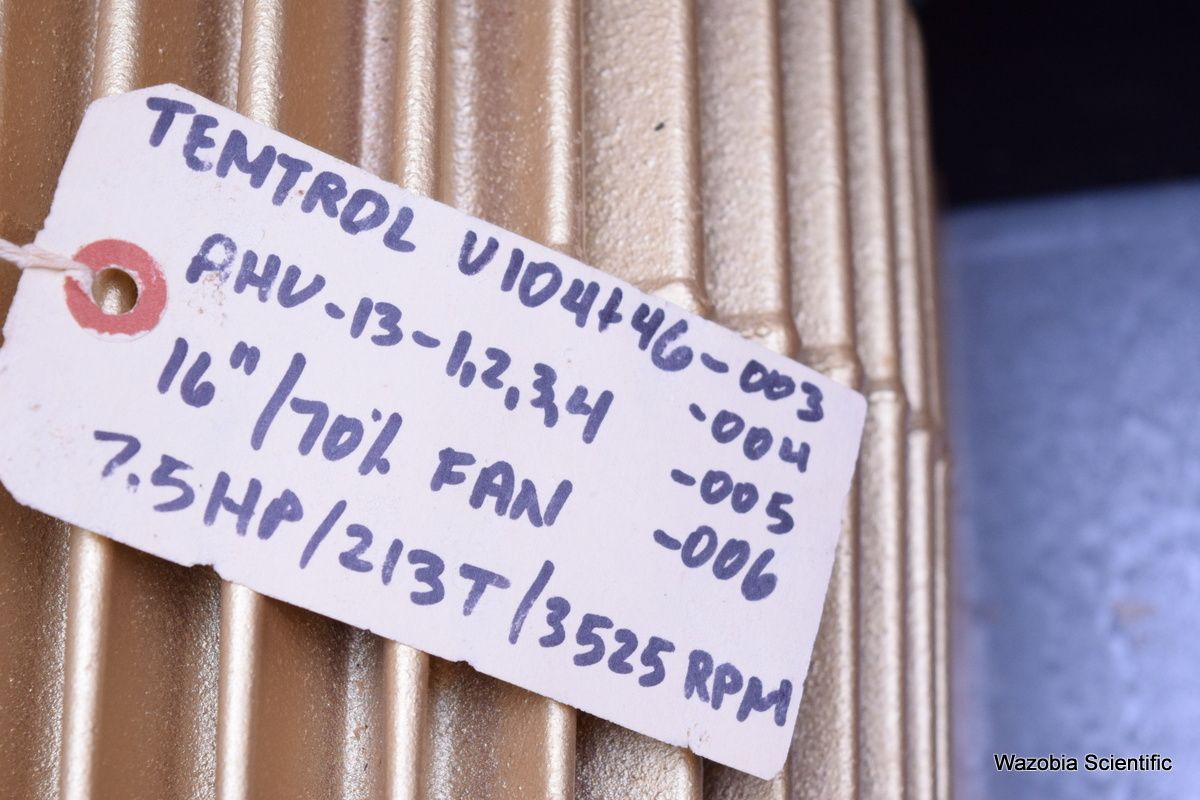 TEMTROL V104746-003
AHU-13-1,2,3,4 -004
16"/70% FAN -005
-006
7.5HP/213T/3525 RPM
Wazobia Scientific